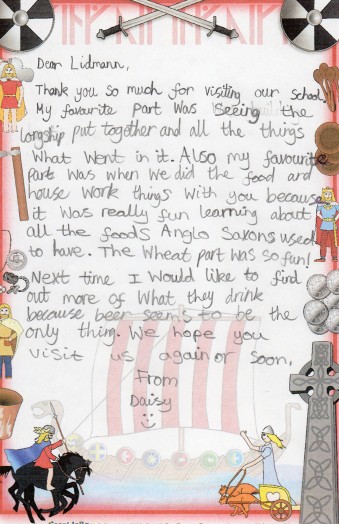 Dear Lidmann,
Thank you so much for visiting our school.
My favourite part was seeing the
longship put together and all the things
what went in it. Also my favourite
parts was when we did the food and
house work things with you because
it was really fun learning about
all the foods Anglo Saxons used
to have. The wheat part was so fun!
Next time I would like to find
out more of what they drink
because beer seems to be the
only thing. We hope you
visit us again or soon.
From
Daisy